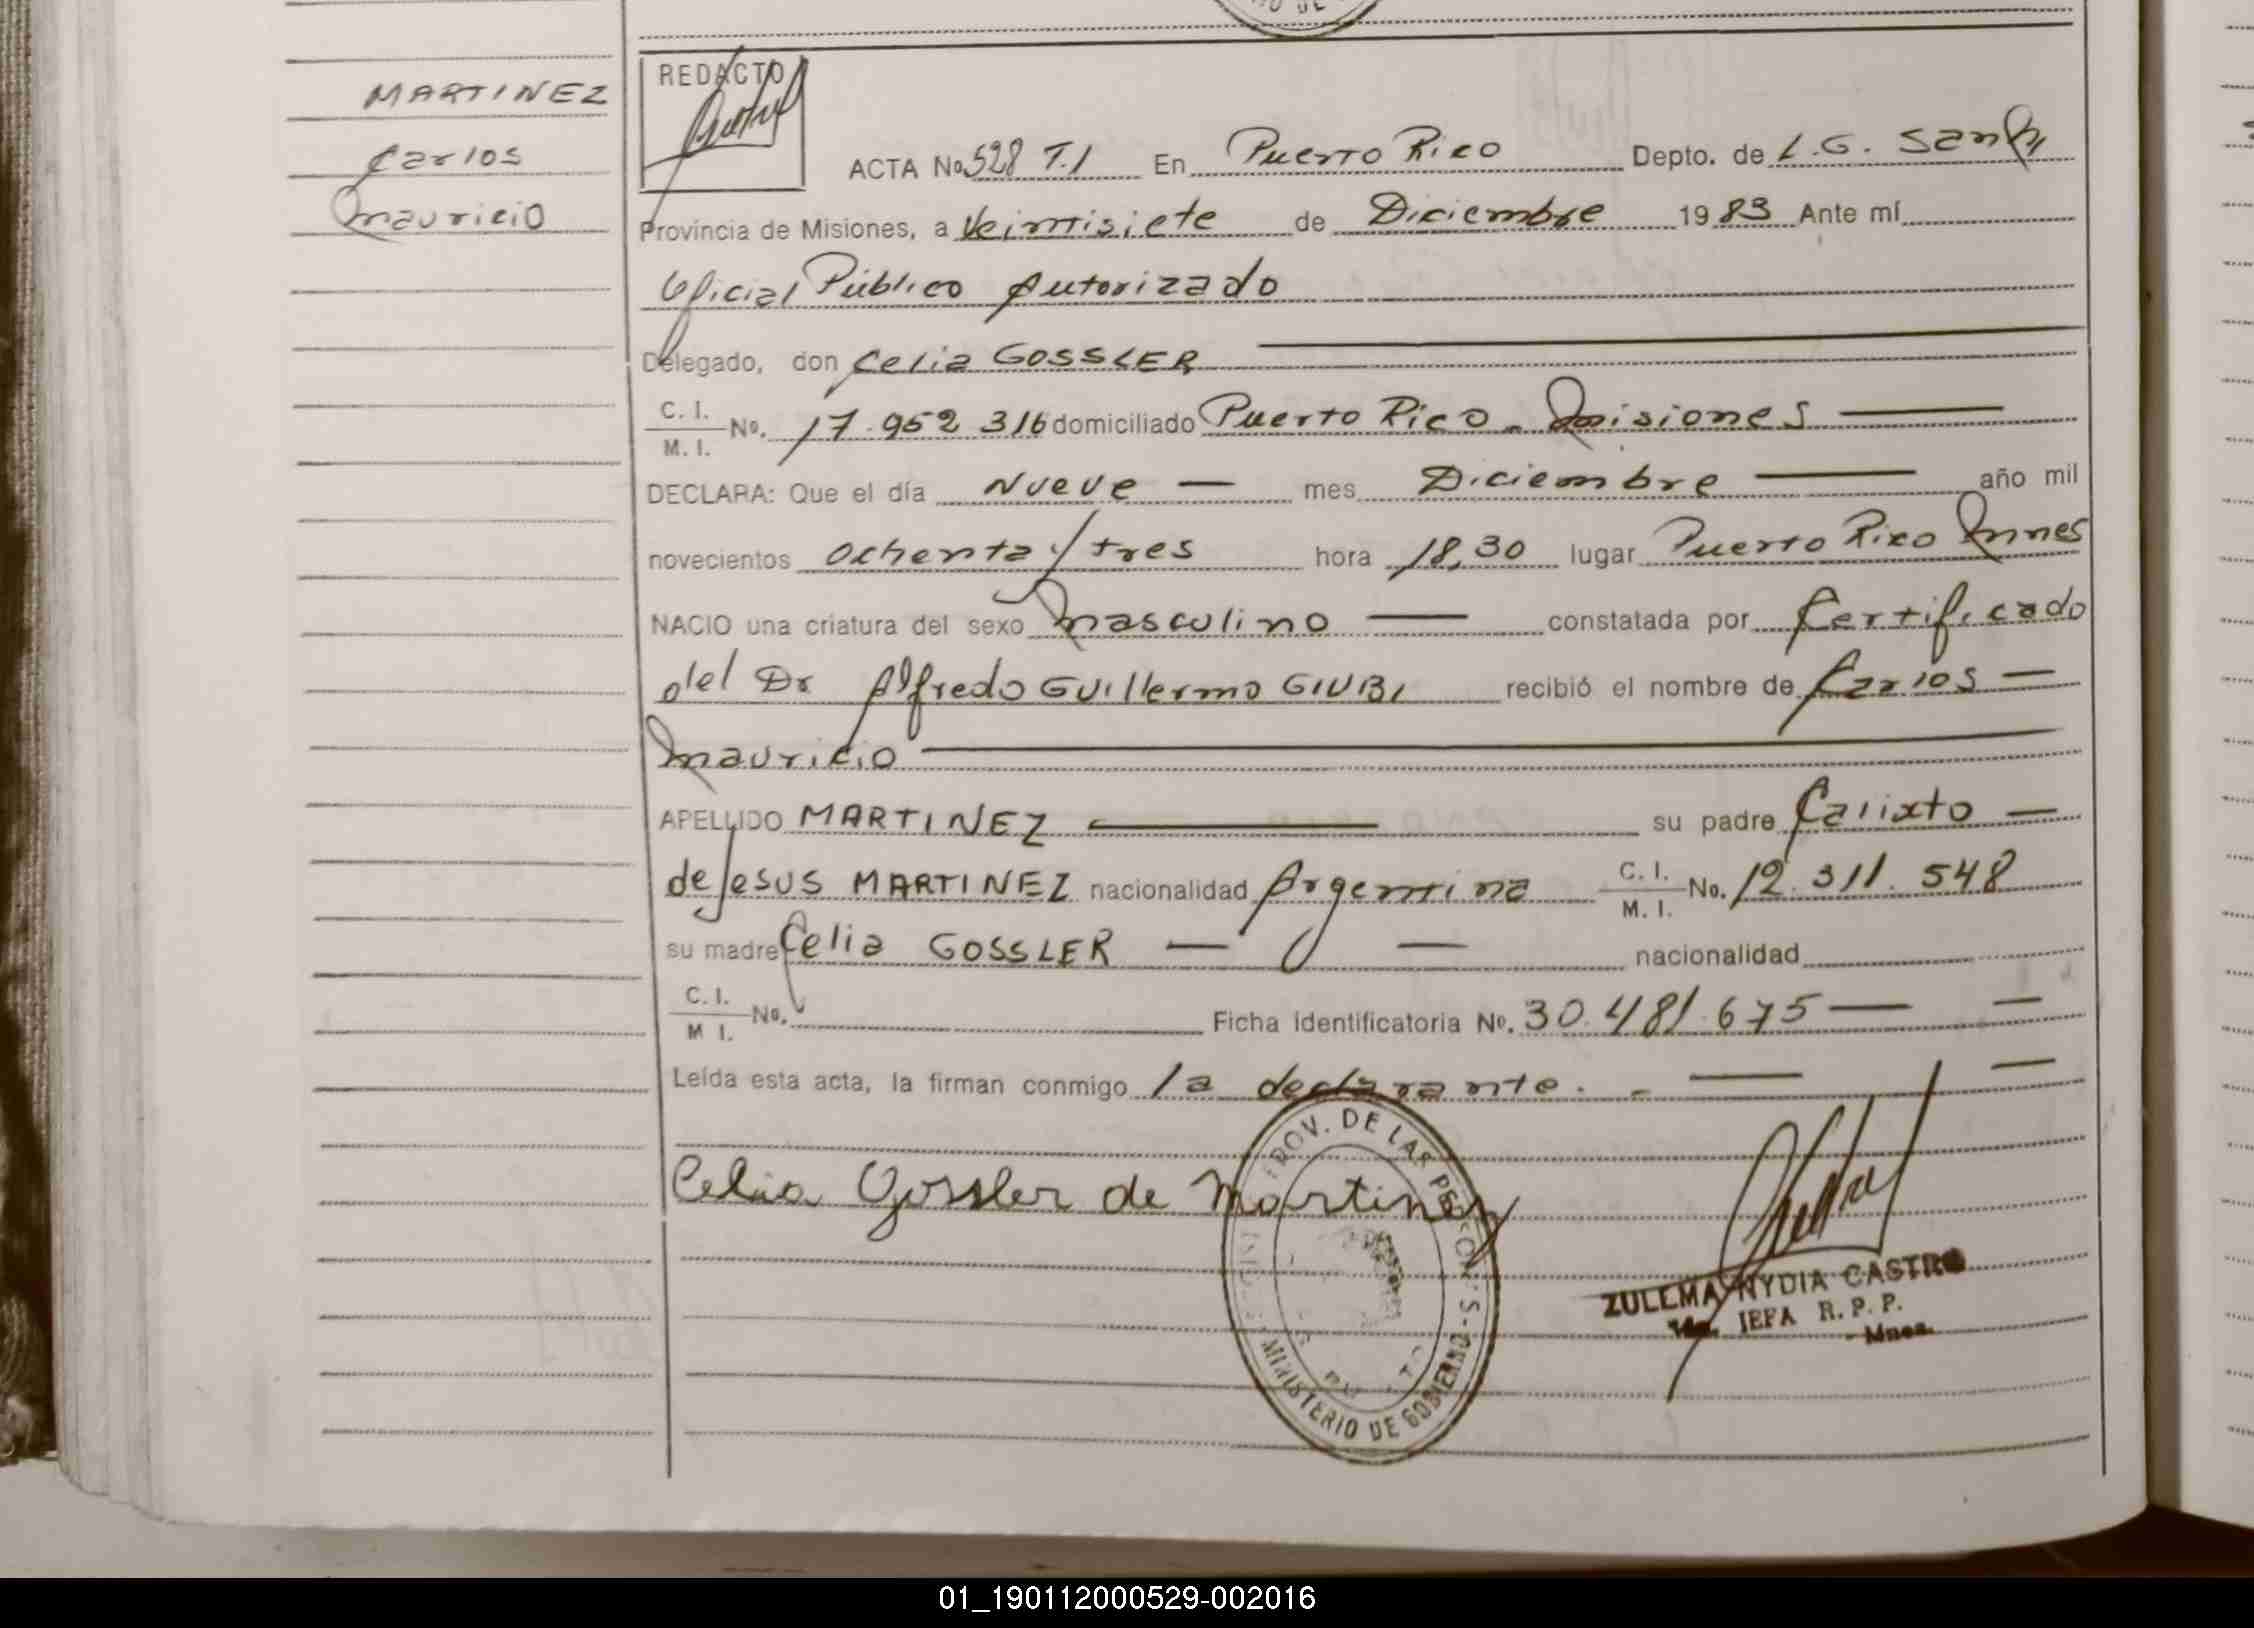 MARTINEZ
Carlos
Mauricio
REDACTO
ACTA No 528 T.I En Puerto Rico Depto. de L.G. San
Provincia de Misiones, a Veintisiete de Diciembre 1983 Ante mí
Oficial Público Autorizado
Delegado, don Celia GOSSLER
C. I.
M. I. No. 17.952 316 domiciliado Puerto Rico - Misiones
DECLARA: Que el día Nueve mes Diciembre año mil
novecientos ochenta y tres hora 18,30 lugar Puerto Rico Mnes
NACIO una criatura del sexo masculino constatada por Certificado
del Dr Alfredo Guillermo GIUBI recibió el nombre de Carlos
Mauricio
APELLIDO MARTINEZ su padre Calixto
de Jesus MARTINEZ nacionalidad Argentina C. I. M. I. No. 12.311.548
su madre Celia GOSSLER nacionalidad
C. I.
M I. No.
Ficha Identificatoria No. 30.481.675
Leída esta acta, la firman conmigo la declarante.
Celia Gossler de Martinez
PROV. DE LAS PERSONAS - MINISTERIO DE GOBIERNO
ZULEMA NYDIA CASTRO
JEFA R. P. P.
Mnes.
01_190112000529-002016